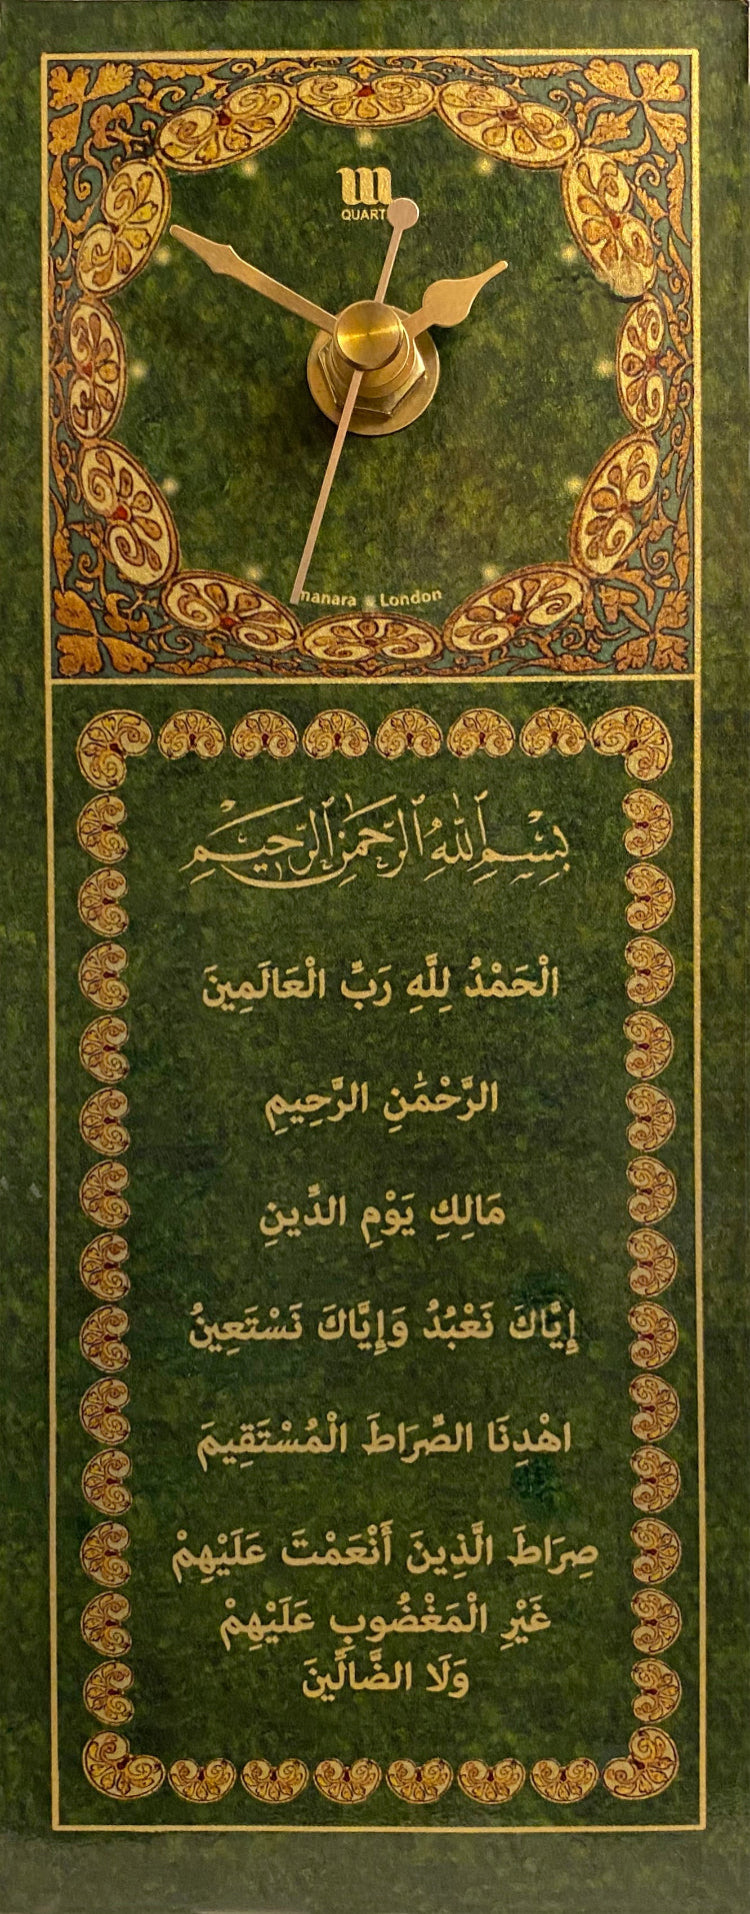 m
QUART
manara London
بِسْمِ ٱللَّٰهِ ٱلرَّحْمَٰنِ ٱلرَّحِيمِ
الْحَمْدُ لِلَّهِ رَبِّ الْعَالَمِينَ
الرَّحْمَٰنِ الرَّحِيمِ
مَالِكِ يَوْمِ الدِّينِ
إِيَّاكَ نَعْبُدُ وَإِيَّاكَ نَسْتَعِينُ
اهْدِنَا الصِّرَاطَ الْمُسْتَقِيمَ
صِرَاطَ الَّذِينَ أَنْعَمْتَ عَلَيْهِمْ
غَيْرِ الْمَغْضُوبِ عَلَيْهِمْ
وَلَا الضَّالِّينَ